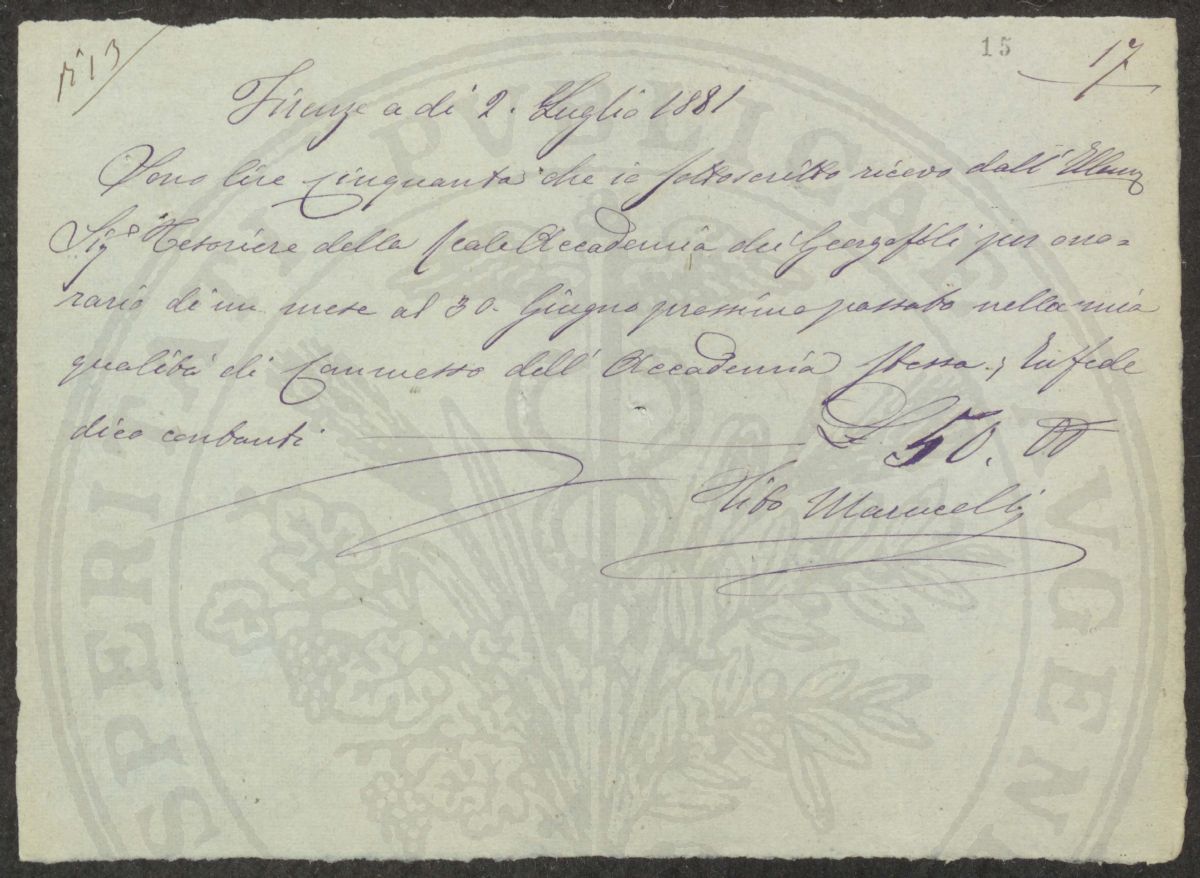 N° 13
15
17
Firenze a di 2. Luglio 1881
Sono lire Cinquanta che io sottoscritto ricevo dall'
Sigr Tesoriere della Reale Accademia dei Georgofili per ono=
rario di un mese al 30. Giugno prossimo passato nella mia
qualità di Commesso dell' Accademia stessa; In fede
dico contanti
L 50. 00
Tito Marucelli
PROSPERITATI PVBLICAE AVGENDAE